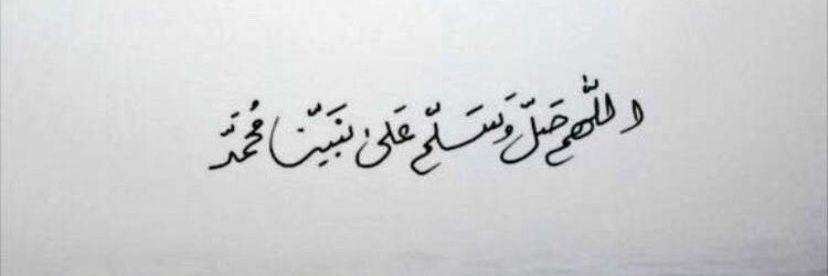 اللّهم صَلّ وَسَلّم عَلى نَبَيّنا مُحمَدَّ